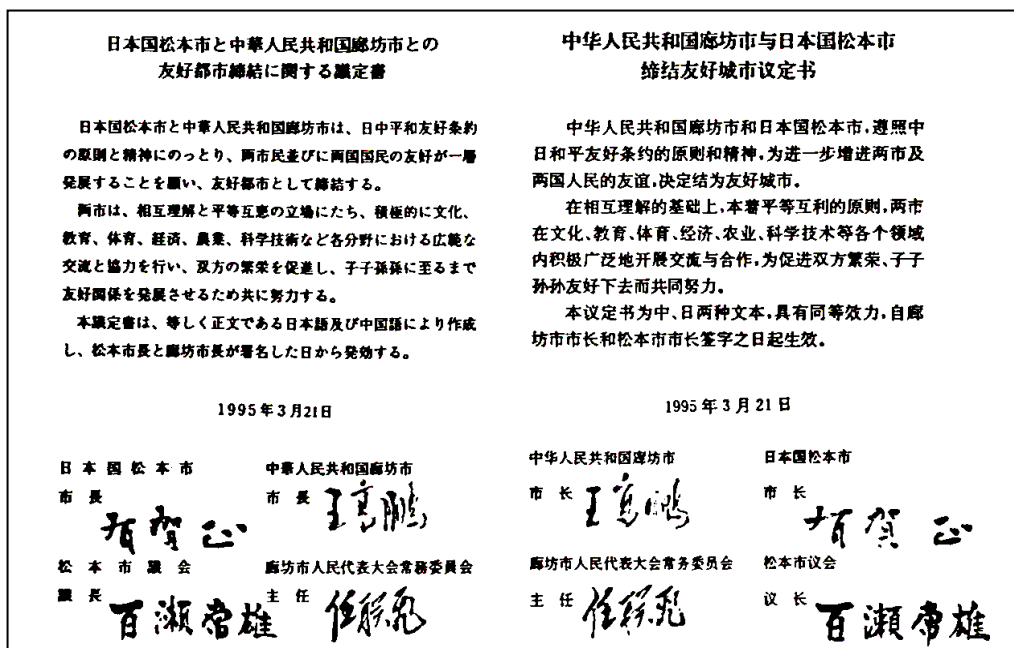 日本国松本市と中華人民共和国廊坊市との
友好都市締結に関する議定書
日本国松本市と中華人民共和国廊坊市は、日中平和友好条約
の原則と精神にのっとり、両市民並びに両国国民の友好が一層
発展することを願い、友好都市として締結する。
両市は、相互理解と平等互恵の立場にたち、積極的に文化、
教育、体育、経済、農業、科学技術など各分野における広範な
交流と協力を行い、双方の繁栄を促進し、子子孫孫に至るまで
友好関係を発展させるため共に努力する。
本議定書は、等しく正文である日本語及び中国語により作成
し、松本市長と廊坊市長が署名した日から発効する。
1995年3月21日
日本国松本市 中華人民共和国廊坊市
市長 有賀正 市長 王富鵬
松本市議会 廊坊市人民代表大会常務委員会
議長 百瀬常雄 主任
中华人民共和国廊坊市与日本国松本市
缔结友好城市议定书
中华人民共和国廊坊市和日本国松本市,遵照中
日和平友好条约的原则和精神,为进一步增进两市及
两国人民的友谊,决定结为友好城市。
在相互理解的基础上,本着平等互利的原则,两市
在文化、教育、体育、经济、农业、科学技术等各个领域
内积极广泛地开展交流与合作,为促进双方繁荣、子子
孙孙友好下去而共同努力。
本议定书为中、日两种文本,具有同等效力,自廊
坊市市长和松本市市长签字之日起生效。
1995年3月21日
中华人民共和国廊坊市 日本国松本市
市长 市长 有賀正
廊坊市人民代表大会常务委员会 松本市议会
主任 议长 百瀬常雄